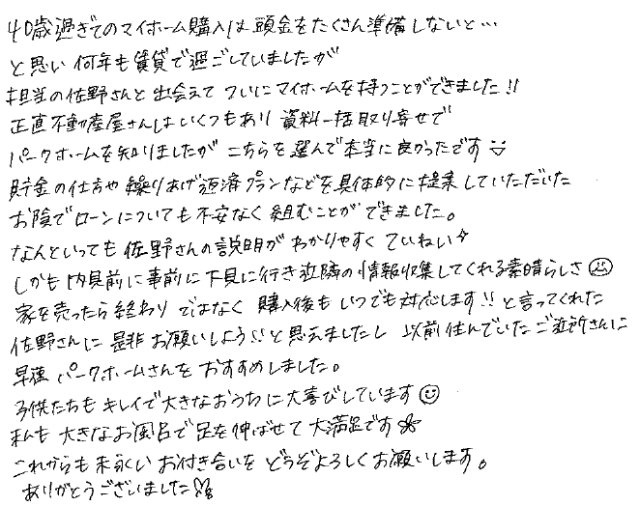 40歳過ぎてのマイホーム購入は頭金をたくさん準備しないと…
と思い何年も賃貸で過ごしていましたが
担当の佐野さんと出会えてついにマイホームを持つことができました!!
正直不動産屋さんはいくつもあり資料一括取り寄せで
パークホームを知りましたがこちらを選んで本当に良かったです
貯金の仕方や繰りあげ返済プランなどを具体的に提案していただいた
お陰でローンについても不安なく組むことができました。
なんといっても佐野さんの説明がわかりやすくていねい
しかも内見前に事前に下見に行き近隣の情報収集してくれる素晴らしさ
家を売ったら終わりではなく購入後もいつでも対応します!!と言ってくれた
佐野さんに是非お願いしよう!!と思えましたし以前住んでいたご近所さんに
早速パークホームさんをおすすめしました。
子供たちもキレイで大きなおうちに大喜びしています
私も大きなお風呂で足を伸ばせて大満足です
これからも末永いお付き合いをどうぞよろしくお願いします。
ありがとうございました